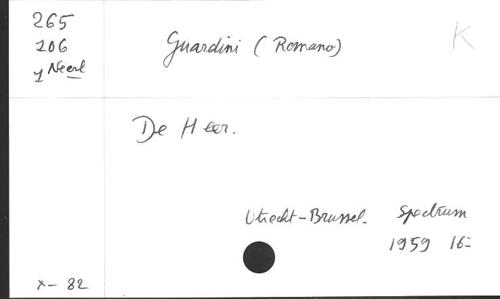 265
206
y Neerl
Guardini (Romano)
K
De Heer.
Utrecht-Brussel. Spectrum
1959 16-
x- 82